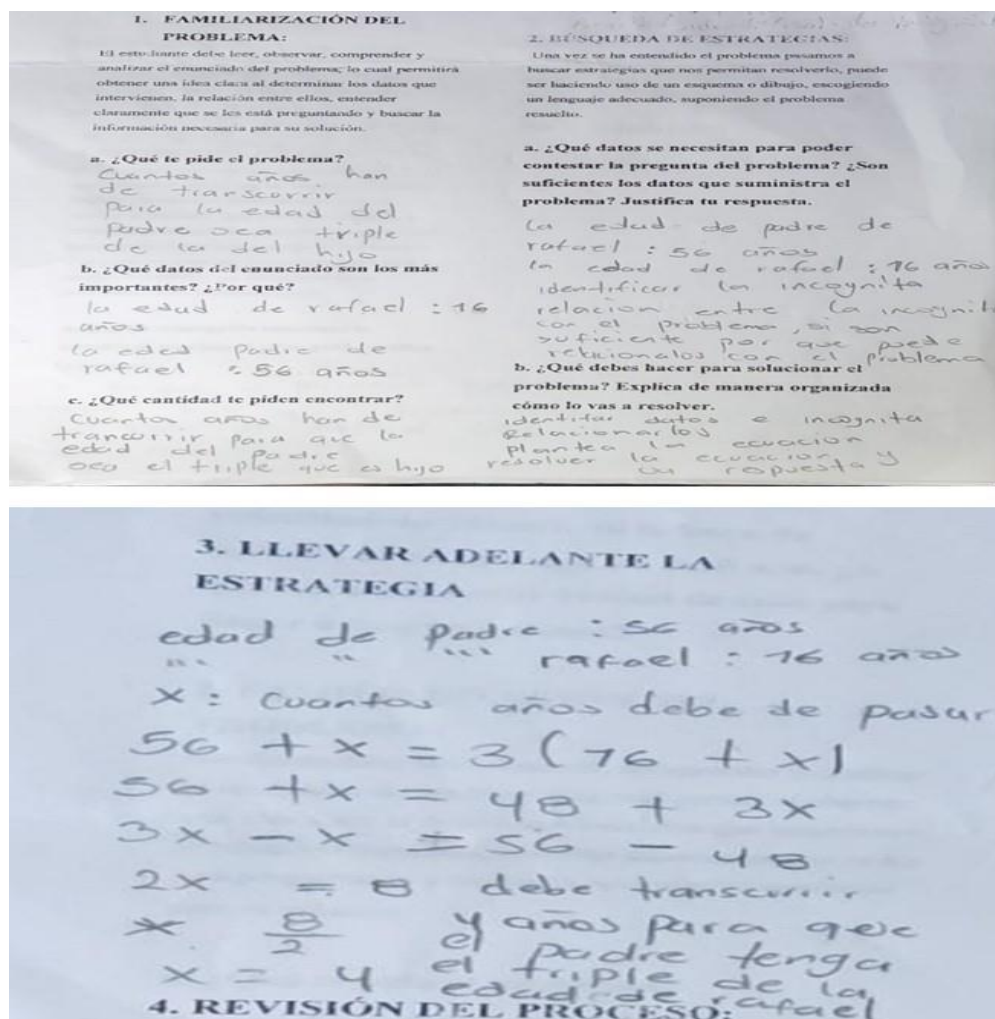 1. FAMILIARIZACIÓN DEL
PROBLEMA:
El estudiante debe leer, observar, comprender y
analizar el enunciado del problema, lo cual permitirá
obtener una idea clara al determinar los datos que
intervienen, la relación entre ellos, entender
claramente que se les está preguntando y buscar la
información necesaria para su solución.
a. ¿Qué te pide el problema?
Cuantos años han
de transcurrir
para la edad del
padre oca triple
de la del hijo
b. ¿Qué datos del enunciado son los más
importantes? ¿Por qué?
la edad de rafael : 16
años
la edad padre de
rafael : 56 años
c. ¿Qué cantidad te piden encontrar?
Cuantos años han de
trancurrir para que la
edad del padre
oca el triple que es hijo
2. BÚSQUEDA DE ESTRATEGIAS:
Una vez se ha entendido el problema pasamos a
buscar estrategias que nos permitan resolverlo, puede
ser haciendo uso de un esquema o dibujo, escogiendo
un lenguaje adecuado, suponiendo el problema
resuelto.
a. ¿Qué datos se necesitan para poder
contestar la pregunta del problema? ¿Son
suficientes los datos que suministra el
problema? Justifica tu respuesta.
la edad de padre de
rafael : 56 años
la edad de rafael : 16 años
identificar la incognita
relacion entre la incognit
con el problema, si son
suficiente por que puede
relacionalos con el problema
b. ¿Qué debes hacer para solucionar el
problema? Explica de manera organizada
cómo lo vas a resolver.
identifar datos e incognita
Relacionarlos
plantea la ecuacion
resolver la ecuacion y
su ropuesta
3. LLEVAR ADELANTE LA
ESTRATEGIA
edad de Padre : 56 años
" " " rafael : 16 años
x : Cuantos años debe de pasar
56 + x = 3 (16 + x)
56 + x = 48 + 3x
3x - x = 56 - 48
2x = 8 debe transcurrir
x 8/2 4 años para que
el padre tenga
x = 4 el triple de la
edad de rafael
4. REVISIÓN DEL PROCESO: